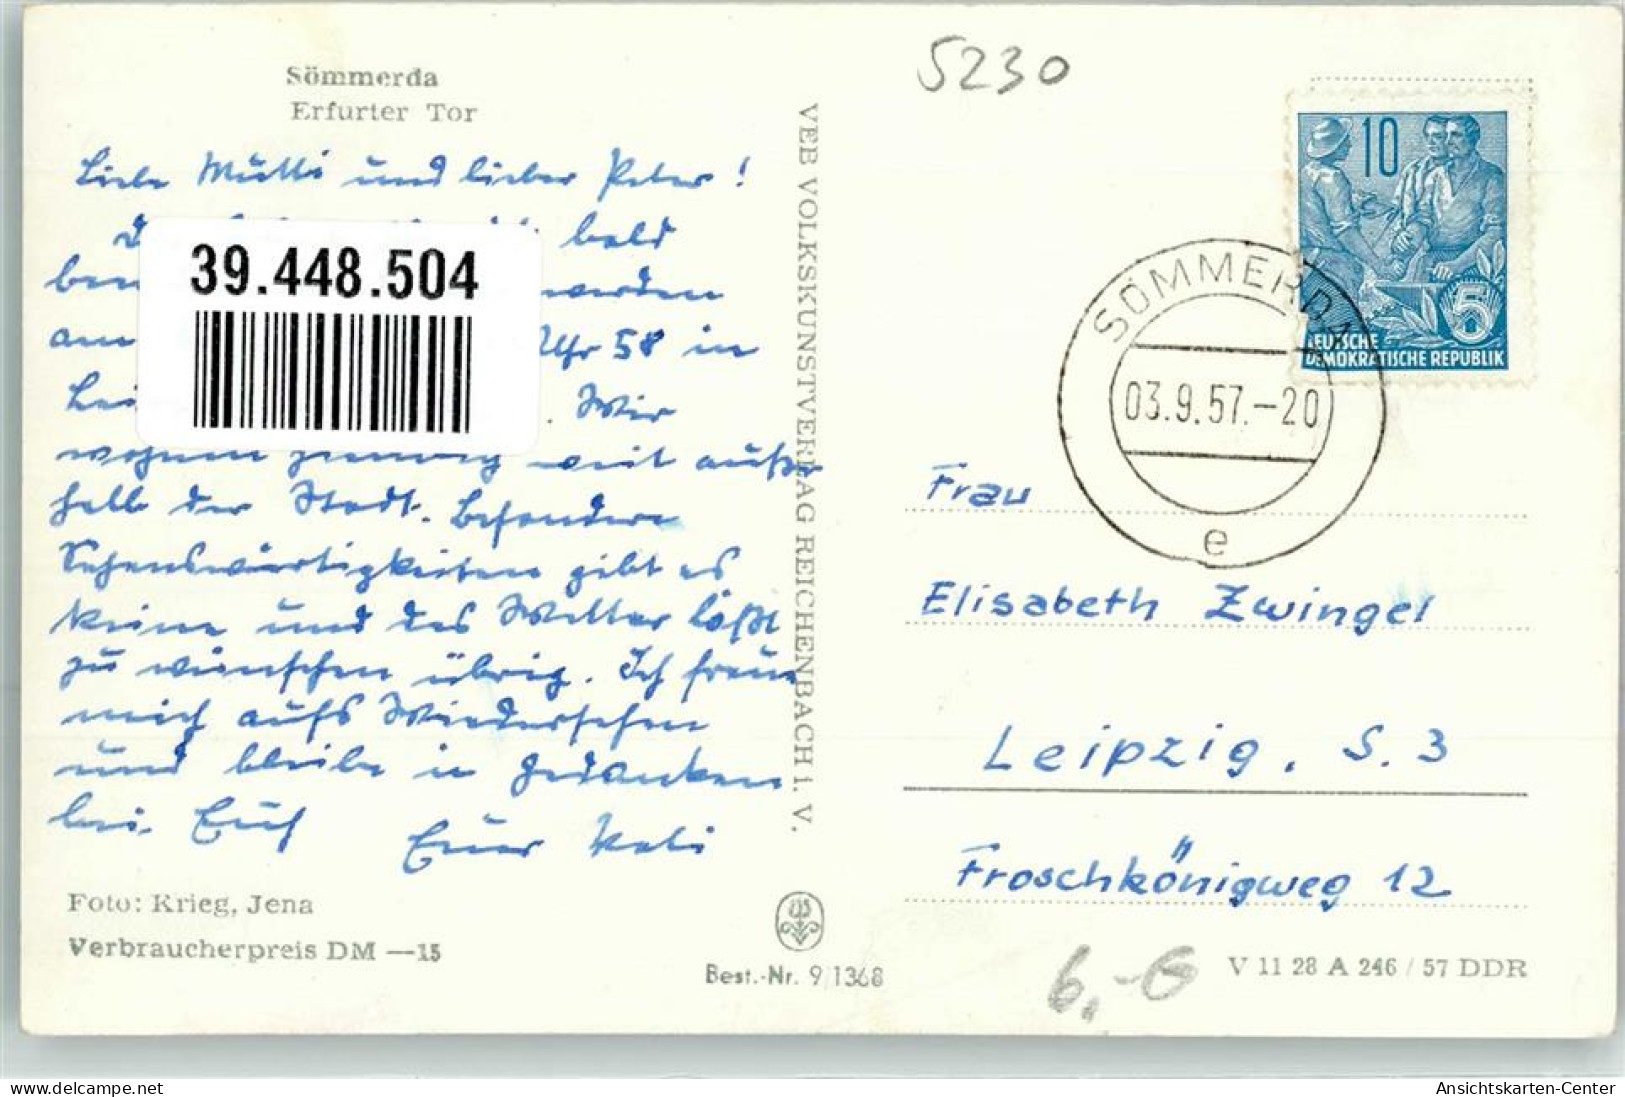 Sömmerda
Erfurter Tor
5230
Liebe Mutti und lieber Peter!
bald
39.448.504
werden
am Uhr 58 in
Wir
wohnen ziemlich weit außer
halb der Stadt. Besondere
Sehenswürtigkeiten gibt es
keine und das Wetter läßt
zu wünschen übrig. Ich freue
mich aufs Wiedersehen
und bleibe in Gedanken
bei Euch
Euer
Foto: Krieg, Jena
Verbraucherpreis DM —15
VEB VOLKSKUNSTVERLAG REICHENBACH i. V.
Best.-Nr. 9/1368
10
5
DEUTSCHE
DEMOKRATISCHE REPUBLIK
SÖMMERDA
03.9.57.-20
e
Frau
Elisabeth Zwingel
Leipzig, S. 3
Froschkönigweg 12
6,-€
V 11 28 A 246 / 57 DDR
www.delcampe.net
Ansichtskarten-Center